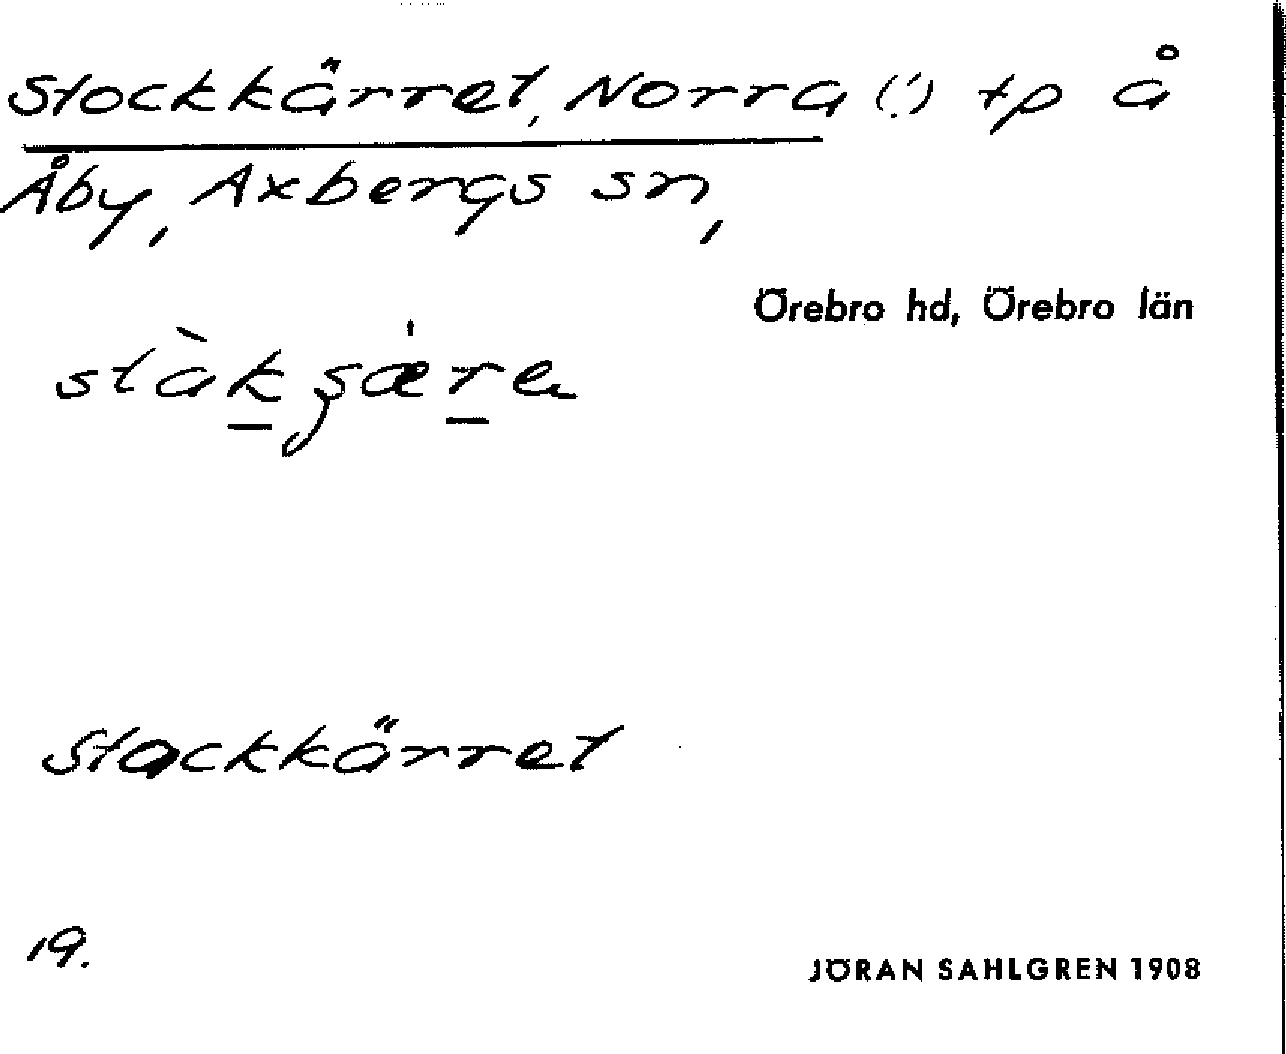 Stockkärret, Norra (!) tp å
Åby, Axbergs sn,
Örebro hd, Örebro län
Stockkärret
19.
JÖRAN SAHLGREN 1908